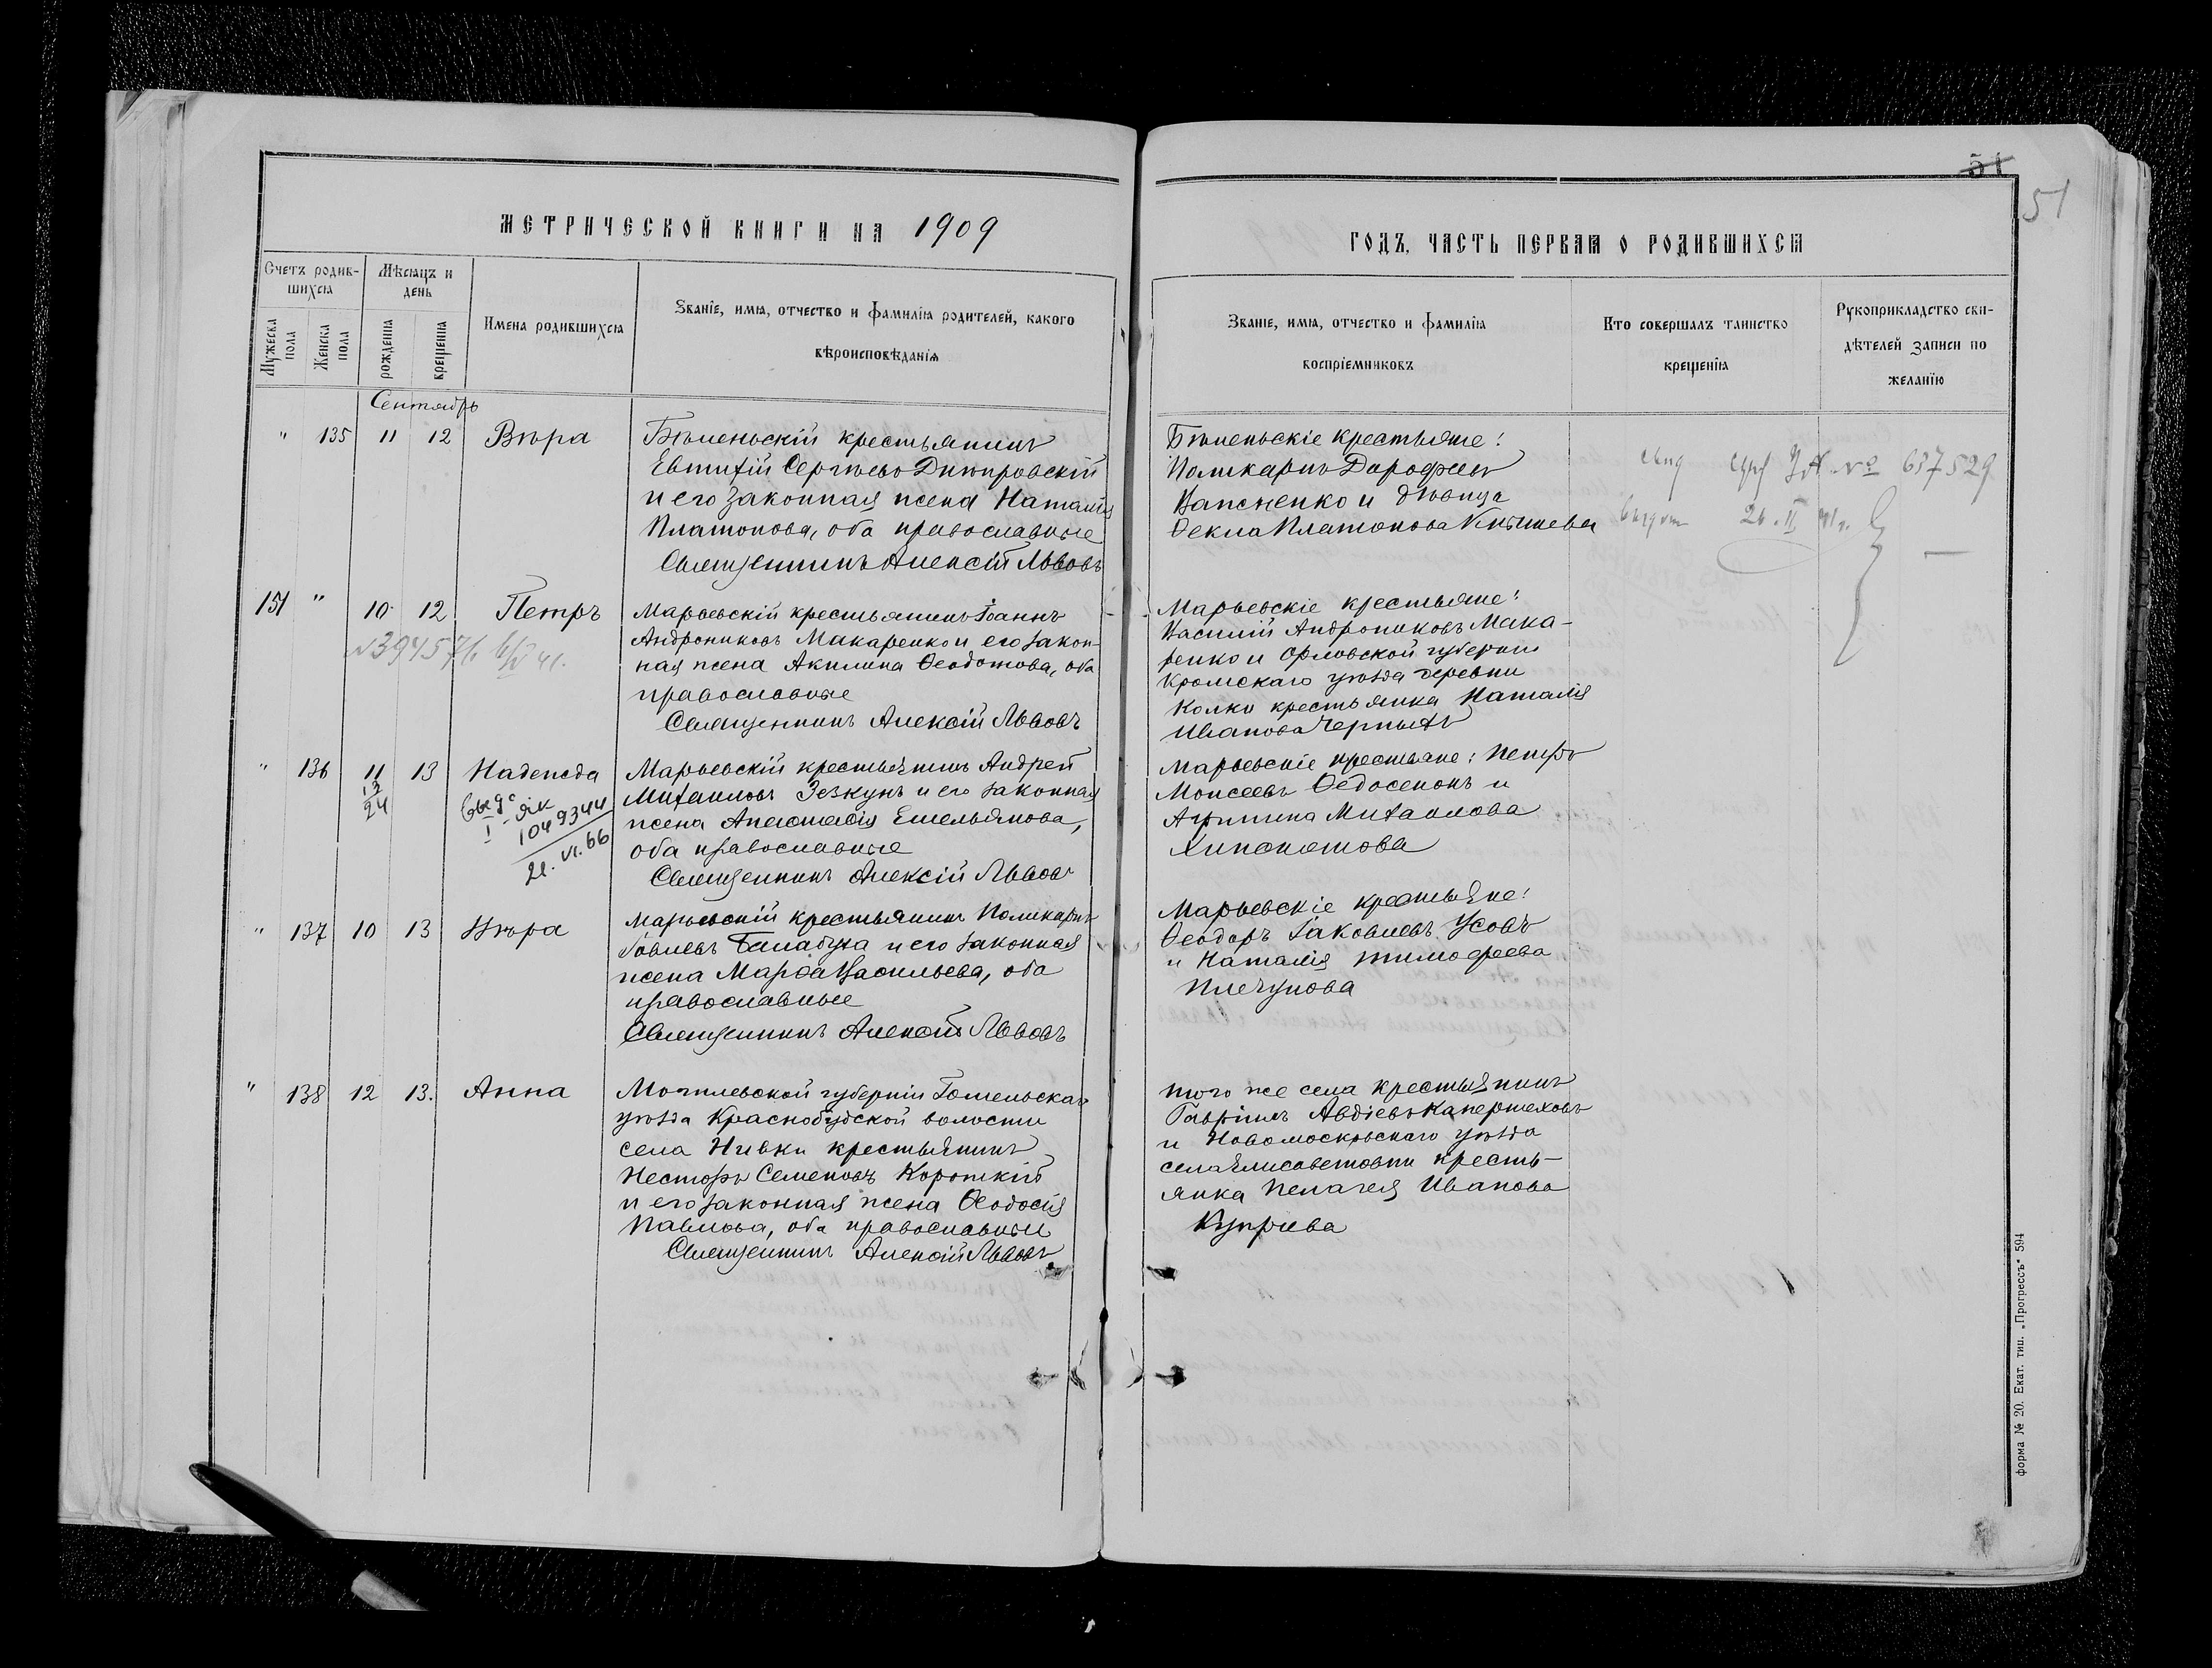 51
51
МЕТРИЧЕСКОЙ КНИГИ НА 1909
ГОДЪ, ЧАСТЬ ПЕРВАЯ О РОДИВШИХСЯ
Счетъ родившихся
Мѣсяцъ и день
Мужеска пола
Женска пола
рожденія
крещенія
Имена родившихся
Званіе, имя, отчество и фамилія родителей, какого
вѣроисповѣданія
Званіе, имя, отчество и фамилія
воспріемниковъ
Кто совершалъ таинство
крещенія
Рукоприкладство сви-
дѣтелей записи по
желанію
Сентябрь
" 135 11 12 Вѣра
крестьянинъ
Евтихій Сергѣевъ Днѣпровскій
и его законная жена Наталія
Платонова, оба православные
Священникъ Алексій Львовъ
крестьяне:
Поликарпъ Дорофеев
и дѣвица
Ѳекла Платонова
№ 637529
151 " 10 12 Петръ
№394571
Марьевскій крестьянинъ Іоаннъ
Андрониковъ Макаренко и его закон-
ная жена Акилина Ѳеодотова, оба
православные
Священникъ Алексій Львовъ
Марьевскіе крестьяне:
Василій Андрониковъ Мака-
ренко и Орловской губерніи
Кромскаго уѣзда деревни
Колки крестьянка Наталія
Иванова Черныхъ
" 136 11 13 Надежда
24
1049344
21.VI.66
Марьевскій крестьянинъ Андрей
Михаиловъ Зезкунъ и его законная
жена Анастасія Емельянова,
оба православные
Священникъ Алексій Львовъ
Марьевскіе крестьяне: Петръ
Моисеевъ Ѳедосенокъ и
Михаилова
" 137 10 13 Вѣра
Марьевскій крестьянинъ Поликарпъ
Іовлевъ Балабуха и его законная
жена Марѳа Васильева, оба
православные
Священникъ Алексій Львовъ
Марьевскіе крестьяне:
Ѳеодоръ Іаковлевъ Усовъ
и Наталія Тимофеева
Плечунова
" 138 12 13. Анна
Могилевской губерніи Гомельскаго
уѣзда Краснобудской волости
села Нивки крестьянинъ
Несторъ Семеновъ Короткій
и его законная жена Ѳеодосія
Павлова, оба православные
Священникъ Алексій Львовъ
того же села крестьянинъ
Гавріилъ Авдіевъ
и Новомосковскаго уѣзда
села Елисаветовки кресть-
янка Пелагея Иванова
форма № 20. Екат. тип. „Прогрессъ“ 594